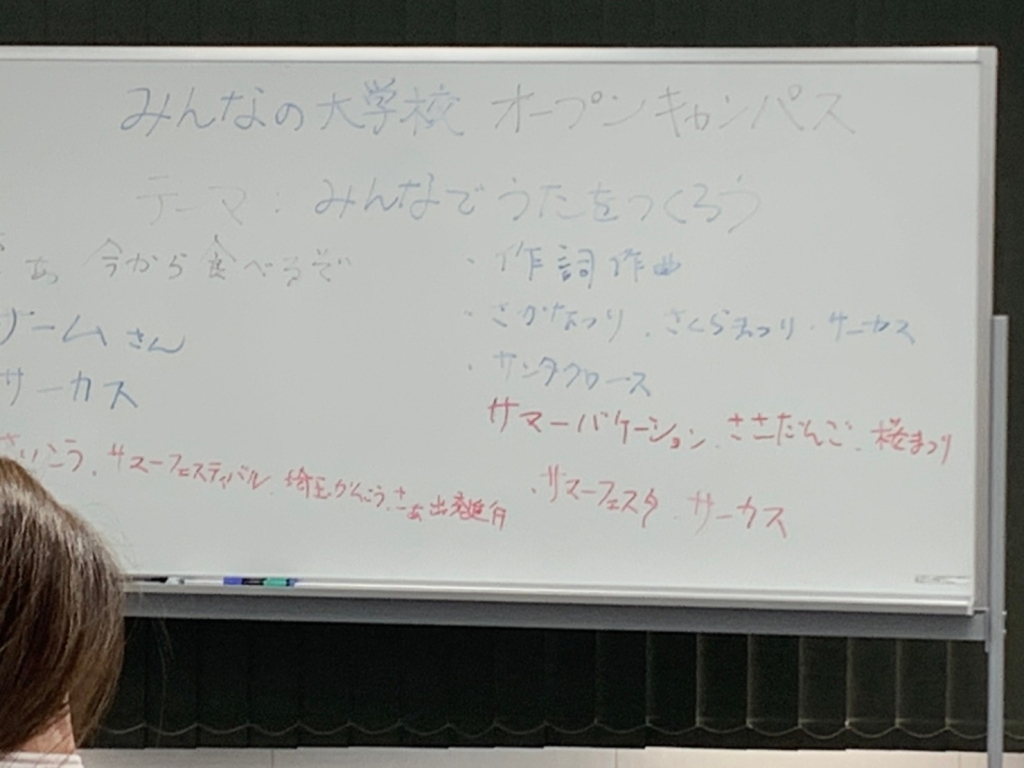 みんなの大学校 オープンキャンパス
テーマ: みんなでうたをつくろう
さぁ 今から食べるぞ
ゲームさん
サーカス
さいこう、サマーフェスティバル、埼玉かんこう、さぁ出発進行
・作詞作曲
・さかなつり、さくらまつり・サーカス
・サンタクロース
サマーバケーション、ささだんご、桜まつり
・サマーフェスタ、サーカス